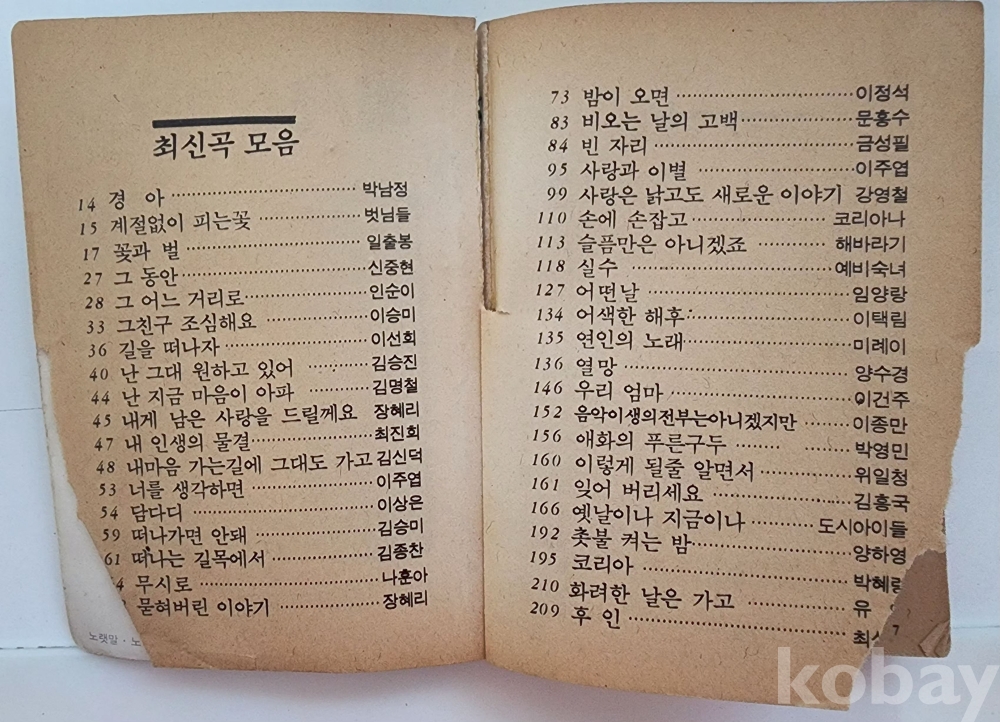 최신곡 모음
14 경 아 박남정
15 계절없이 피는꽃 벗님들
17 꽃과 벌 일출봉
27 그 동안 신중현
28 그 어느 거리로 인순이
33 그친구 조심해요 이승미
36 길을 떠나자 이선희
40 난 그대 원하고 있어 김승진
44 난 지금 마음이 아파 김명철
45 내게 남은 사랑을 드릴께요 장혜리
47 내 인생의 물결 최진희
48 내마음 가는길에 그대도 가고 김신덕
53 너를 생각하면 이주엽
54 담다디 이상은
59 떠나가면 안돼 김승미
61 떠나는 길목에서 김종찬
무시로 나훈아
묻혀버린 이야기 장혜리
노랫말 · 노
73 밤이 오면 이정석
83 비오는 날의 고백 문홍수
84 빈 자리 금성필
95 사랑과 이별 이주엽
99 사랑은 낡고도 새로운 이야기 강영철
110 손에 손잡고 코리아나
113 슬픔만은 아니겠죠 해바라기
118 실수 예비숙녀
127 어떤날 임양랑
134 어색한 해후 이택림
135 연인의 노래 미례이
136 열망 양수경
146 우리 엄마 이건주
152 음악이생의전부는아니겠지만 이종만
156 애화의 푸른구두 박영민
160 이렇게 될줄 알면서 위일청
161 잊어 버리세요 김흥국
166 옛날이나 지금이나 도시아이들
192 촛불 켜는 밤 양하영
195 코리아 박혜령
210 화려한 날은 가고 유
209 후 인 최
7
kobay